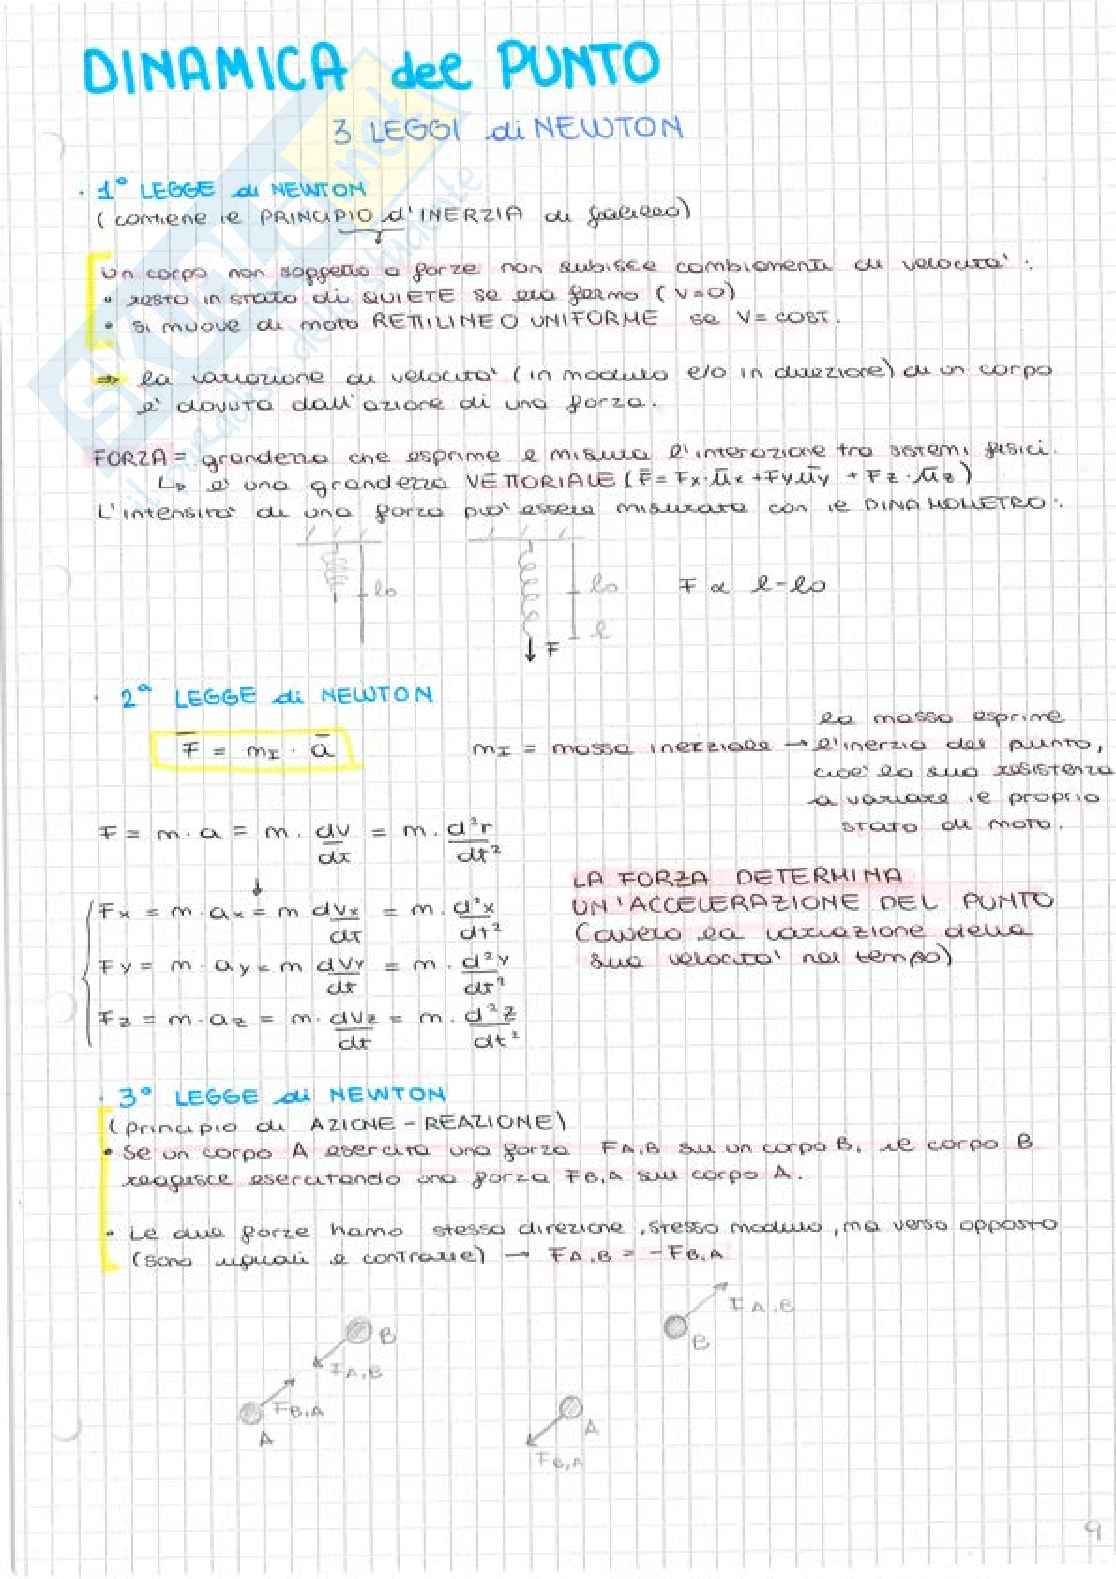 DINAMICA del PUNTO
3 LEGGI di NEWTON
· 1° LEGGE di NEWTON
(contiene il PRINCIPIO d'INERZIA di Galileo)
Un corpo non soggetto a forze non subisce cambiamenti di velocità:
• resta in stato di QUIETE se era fermo (V=0)
• si muove di moto RETTILINEO UNIFORME se V = COST.
⇒ la variazione di velocità (in modulo e/o in direzione) di un corpo
è dovuta dall'azione di una forza.
FORZA = grandezza che esprime e misura l'interazione tra sistemi fisici.
↳ è una grandezza VETTORIALE (F̄ = Fx·ūx + Fyūy + Fz·ūz)
L'intensità di una forza può essere misurata con il DINAMOMETRO:
l0
l0
F ∝ l-l0
l
F
· 2ª LEGGE di NEWTON
F̄ = mI · ā
mI = massa inerziale → la massa esprime
l'inerzia del punto,
cioè la sua resistenza
a variare il proprio
stato di moto.
F = m·a = m· dv/dt = m· d²r/dt²
↓
Fx = m·ax = m dvx/dt = m· d²x/dt²
Fy = m·ay = m dvy/dt = m· d²y/dt²
Fz = m·az = m· dvz/dt = m· d²z/dt²
LA FORZA DETERMINA
UN'ACCELERAZIONE DEL PUNTO
(ovvero la variazione della
sua velocità nel tempo)
· 3° LEGGE di NEWTON
(principio di AZIONE - REAZIONE)
• Se un corpo A esercita una forza FA,B su un corpo B, il corpo B
reagisce esercitando una forza FB,A sul corpo A.
• Le due forze hanno stessa direzione, stesso modulo, ma verso opposto
(sono uguali e contrarie) → FA,B = -FB,A
FA,B
B
B
FA,B
FB,A
A
A
FB,A
9
SKUOLA.net